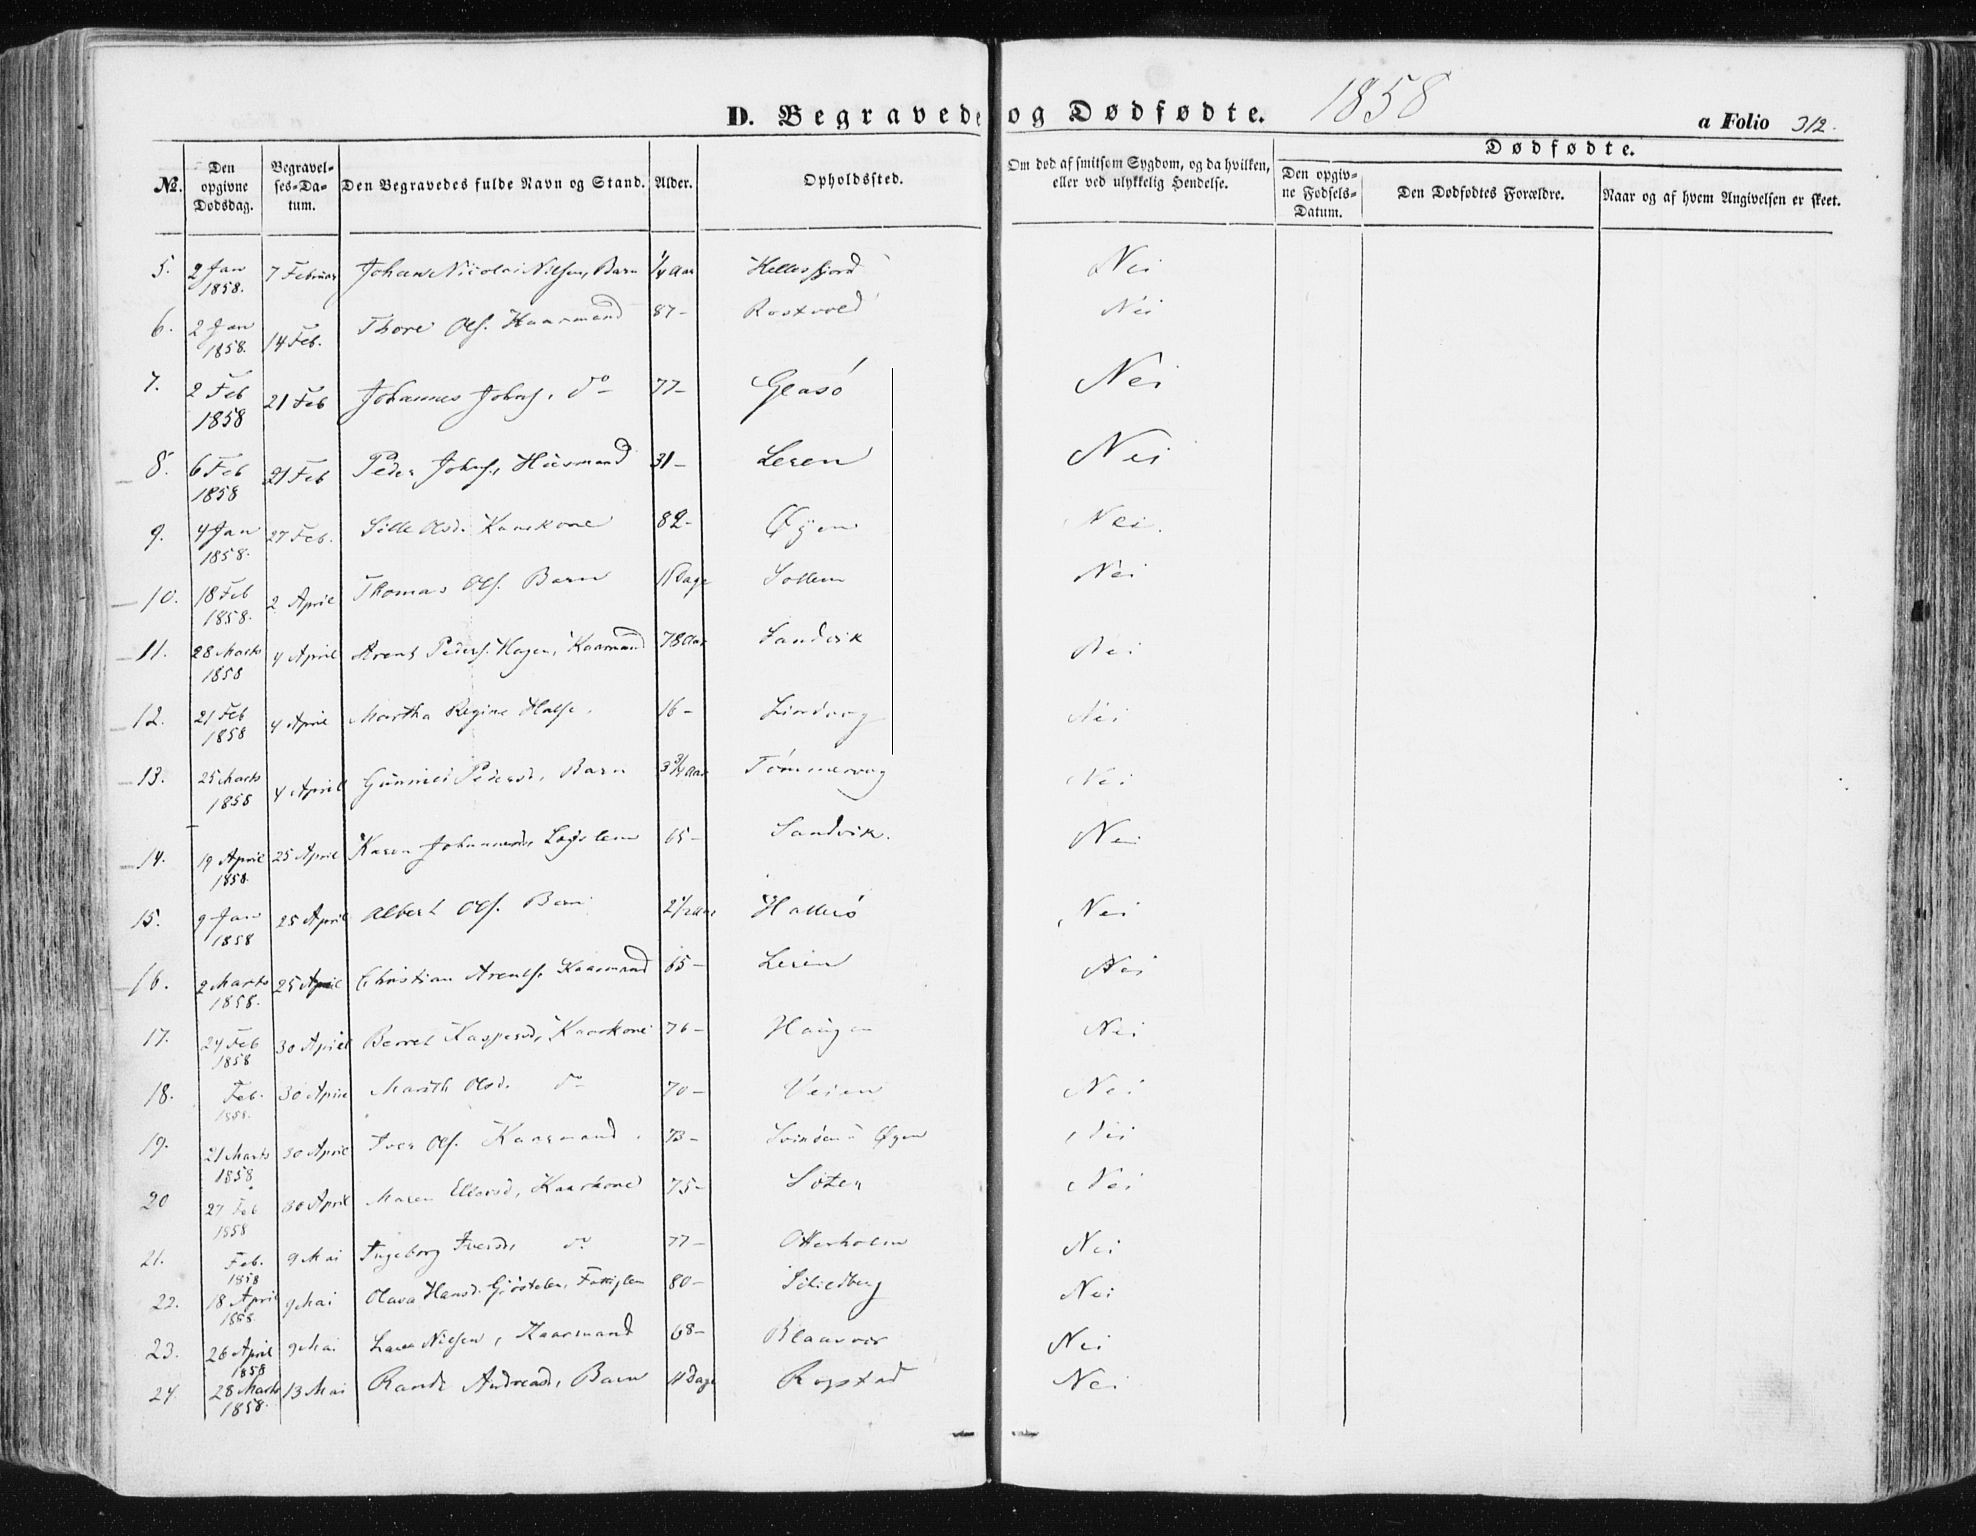 D. Begravede og Dødfødte. 1858
a Folio 312.
Dødfødte.
No. Den opgivne Dødsdag. Begravelses-Datum. Den Begravedes fulde Navn og Stand. Alder. Opholdssted. Om død af smitsom Sygdom, og da hvilken, eller ved ulykkelig Hendelse. Den opgivne Fødsels-Datum. Den Dødfødtes Forældre. Naar og af hvem Angivelsen er skeet.
5. 2 Jan 1858. 7 Februar Johan Nicolai Nilsen, Barn 1/4 Aar Nei
6. 2 Jan 1858. 14 Feb. Thore Ols. Kaarmand 87- Rostvold Nei
7. 2 Feb 1858 21 Feb Johannes Johns. do 77- Gløsø Nei
8. 6 Feb 1858 21 Feb Peder Johns, Huusmand 31- Leren Nei
9. 4 Jan 1858. 27 Feb. Sille Olsd. Kaarkone 82- Øyen Nei.
10. 18 Feb 1858. 2 April Thomas Ols. Barn Dage Sollem Nei
11. 28 Marts 1858 4 April Arent Peders. Hagen, Kaarmand 78 Aar Sandvik Nei
12. 21 Feb 1858 4 April Martha Regine Halse. 16- Nei
13. 25 Marts 1858 4 April Gunniel Pedersd, Barn 3 3/4 Aar Tømmervog Nei
14. 19 April 1858. 25 April Karen Johannesd, Lægslem 65- Sandvik. Nei
15. 9 Jan 1858 25 April Albert Ols. Barn 2 1/2 Aar Nei
16. 2 Marts 1858. 25 April Christian Arents. Kaarmand 65- Leren Nei
17. 24 Feb 1858 30 April Berret Kaspersd, Kaarkone 76- Haugen Nei
18. Feb. 1858. 30 April Marith Olsd. do 70- Veien Nei
19. 21 Marts 1858 30 April Iver Ols. Kaarmand. 73- Øyen Nei
20 27 Feb 1858 30 April Maren Ellevsd, Kaarkone 75- Sæter Nei
21. Feb. 1858 9 Mai Ingeborg Iversd, do 77- Otterholm Nei
22. 18 April 1858. 9 Mai Olava Hansd. Fattiglem 80- Nei
23. 26 April 1858 9 Mai Lars Nielsen, Kaarmand 68- Nei
24. 28 Marts 1858. 13 Mai Randi Andreasd, Barn 11 Dage Rogstad Nei